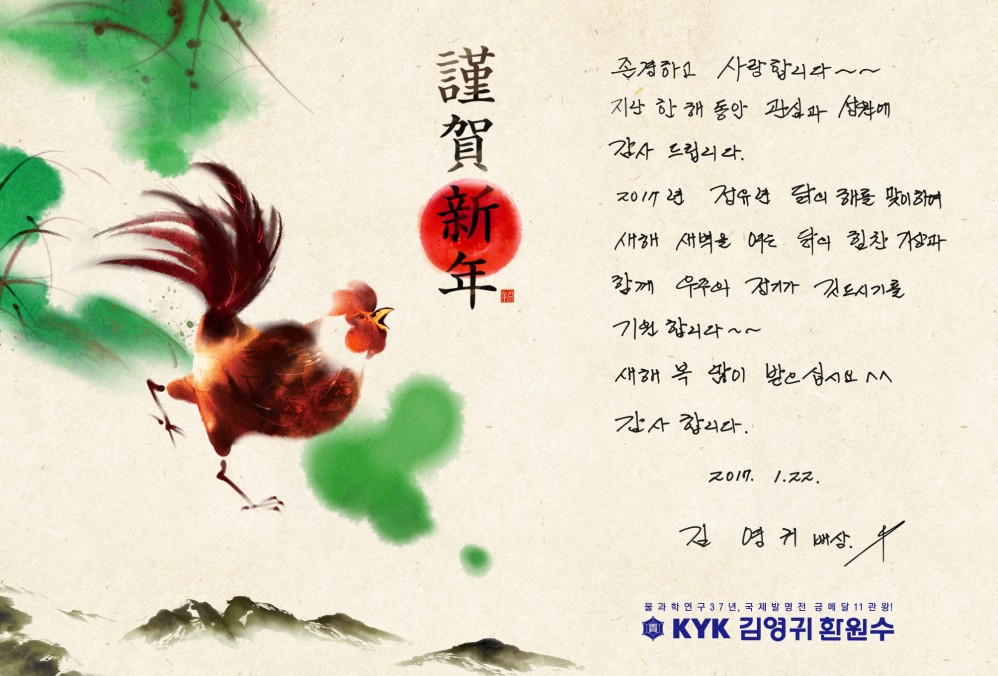 謹賀新年
존경하고 사랑합니다~~
지난 한 해 동안 관심과 성원에
감사 드립니다.
2017년 정유년 닭의 해를 맞이하여
새해 새벽을 여는 닭의 힘찬 기상과
함께 우주의 정기가 깃드시기를
기원 합니다~~
새해 복 많이 받으십시요^^
감사 합니다.
2017. 1.22.
김 영 귀 배상.
물과학연구37년, 국제발명전 금메달11관왕!
KYK 김영귀환원수